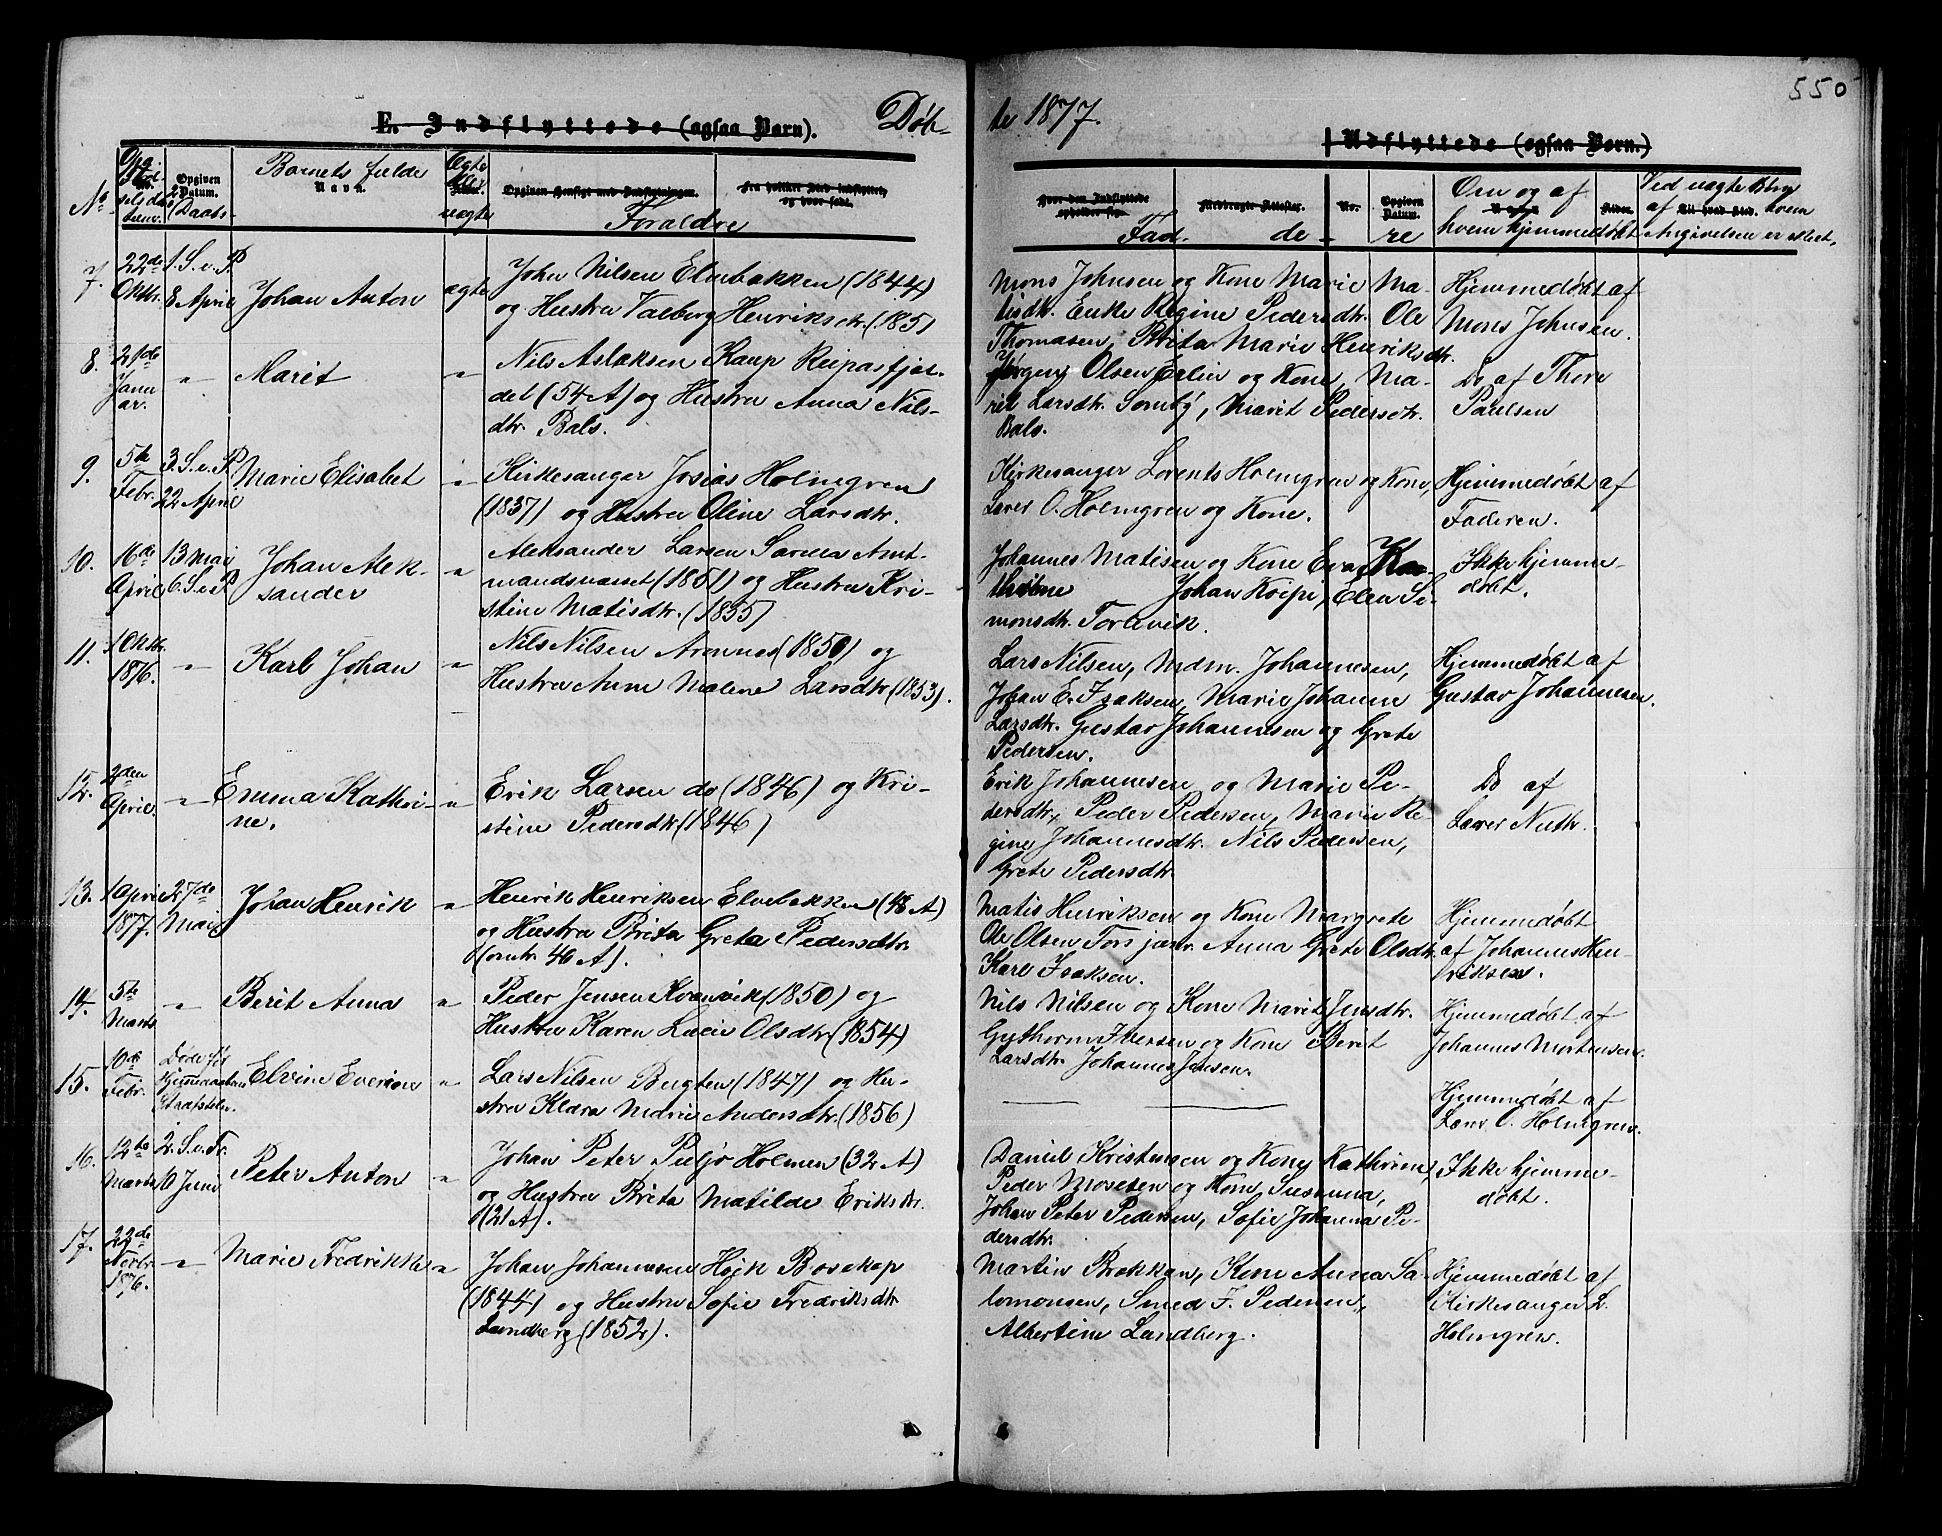 550
E. Indflyttede (ogsaa Børn).
Døb-
te 1877.
Udflyttede (ogsaa Børn.)
No.
Opgiven Datum.
Daabs-
Barnets fulde
Navn.
Ægte
uægte
Opgiven Hensigt med Indflytningen.
Fra hvilket Sted indflyttet, og hvor født.
Foraldre
Hvor den Indflyttede opholder sig.
Medbragte Attester.
No.
Opgiven Datum.
Fad- de- re
Om og af
hvem hjemmedøbt
Alder.
Ved uægte Børn
af hvem
Til hvad Sted.
Angivelsen er skeet,
7.
22de
Oktbr.
1. S. e. P.
8 April
Johan Anton
ægte
John Nilsen Elvebakken (1844)
og Hustru Valberg Henriksdtr. (185)
Mons Johnsen og Kone Marie Ma-
tisdtr. Enke Regine Pedersdtr. Ole
Thomasen, Brita Marie Henriksdtr.
Hjemmedøbt af
Mons Johnsen.
8.
21de
Janu
ar.
"
Marit
"
Nils Aslaksen Kaup Reipasfjor-
det (54 A) og Hustru Anna Nils-
dtr. Bals.
Jørgen Olsen Erlin og Kone, Ma-
rit Larsdtr. Somby, Marit Pedersdtr.
Bals.
Do af Thore
Paulsen
9.
5te
Febr.
3. S. e. P.
22 April
Marie Elisabet
"
Kirkesanger Josias Holmgren
(1837) og Hustru Oline Larsdtr.
Kirkesanger Lorents Holmgren og Kone,
Lærer O. Holmgren og Kone.
Hjemmedøbt af
Faderen.
10.
16de
April
13 Mai
6. S. e. P.
Johan Alek-
sander
"
Aleksander Larsen Sarilla Amt-
mandsnæset (1851) og Hustru Kri-
stine Matisdtr. (1855)
Johannes Matisen og Kone Eva Ka-
thrine Johan Koipe, Elen Si-
monsdtr. Torlevik.
Ikke hjemme-
døbt.
11.
1 Oktbr.
1876.
"
Karl Johan
"
Nils Nilsen Aronnes (1850) og
Hustru Anne Malene Larsdtr. (1853).
Lars Nilsen, Mdm. Johannesen,
Johan E. Isaksen, Marie Johanne
Larsdtr. Gustav Johannesen og Grete
Pedersen.
Hjemmedøbt af
Gustav Johannesen.
12.
2den
April.
"
Emma Kathri-
ne.
"
Erik Larsen do (1846) og Kri-
stine Pedersdtr (1846)
Erik Johannesen og Marie Pe-
dersdtr, Peder Pedersen, Marie Re-
gine Johannesdtr. Nils Pedersen,
Grete Pedersdtr.
Do af
Lærer Nuth.
13.
1 April
1877.
27de
Mai
Johan Henrik
"
Henrik Henriksen Elvebakken (48 A)
og Hustru Brita Greta Pedersdtr.
(omtr. 46 A).
Matis Henriksen og Kone Margrete
Ole Olsen Torsjærv Anna Grete Olsdtr.
Karl Isaksen.
Hjemmedøbt
af Johannes Hen-
riksen.
14.
5te
Marts
"
Berit Anna
"
Peder Jensen Kvænvik (1850) og
Hustru Karen Lucie Olsdtr. (1854)
Nils Nilsen og Kone Marit Jensdtr.
Gythorm Ibersen og Kone Berit
Larsdtr. Johannes Jensen.
Hjemmedøbt af
Johannes Mortensen.
15.
10de
Febr.
Døde før
Staafstelse.
Elvine Everion
"
Lars Nilsen Bugten (1847) og Hu-
stru Klara Marie Andersdtr. (1856)
Hjemmedøbt af
Lærer O. Holmgren.
16.
12te
Marts
2. S. e. Tr.
10 Juni
Peter Anton
"
Johan Peter Puljo Holmen (32 A)
og Hustru Brita Matilde Eriksdtr.
(21 A).
Daniel Kristensen og Kone Kathrine,
Peder Mosesen og Kone Susanna,
Johan Peter Pedersen, Sofie Johanna Pe-
dersdtr.
Ikke hjemme-
døbt.
17.
22de
Novbr.
1876.
"
Marie Fredrikke
"
Johan Johannesen Heik Bosekop
(1844) og Hustru Sofie Fredriksdtr.
Lundberg (1852).
Martin Brakkan, Kone Anna Sa-
lomonsen, Smed F. Pedersen,
Albertine Lundberg.
Hjemmedøbt af
Kirkesanger L.
Holmgren.